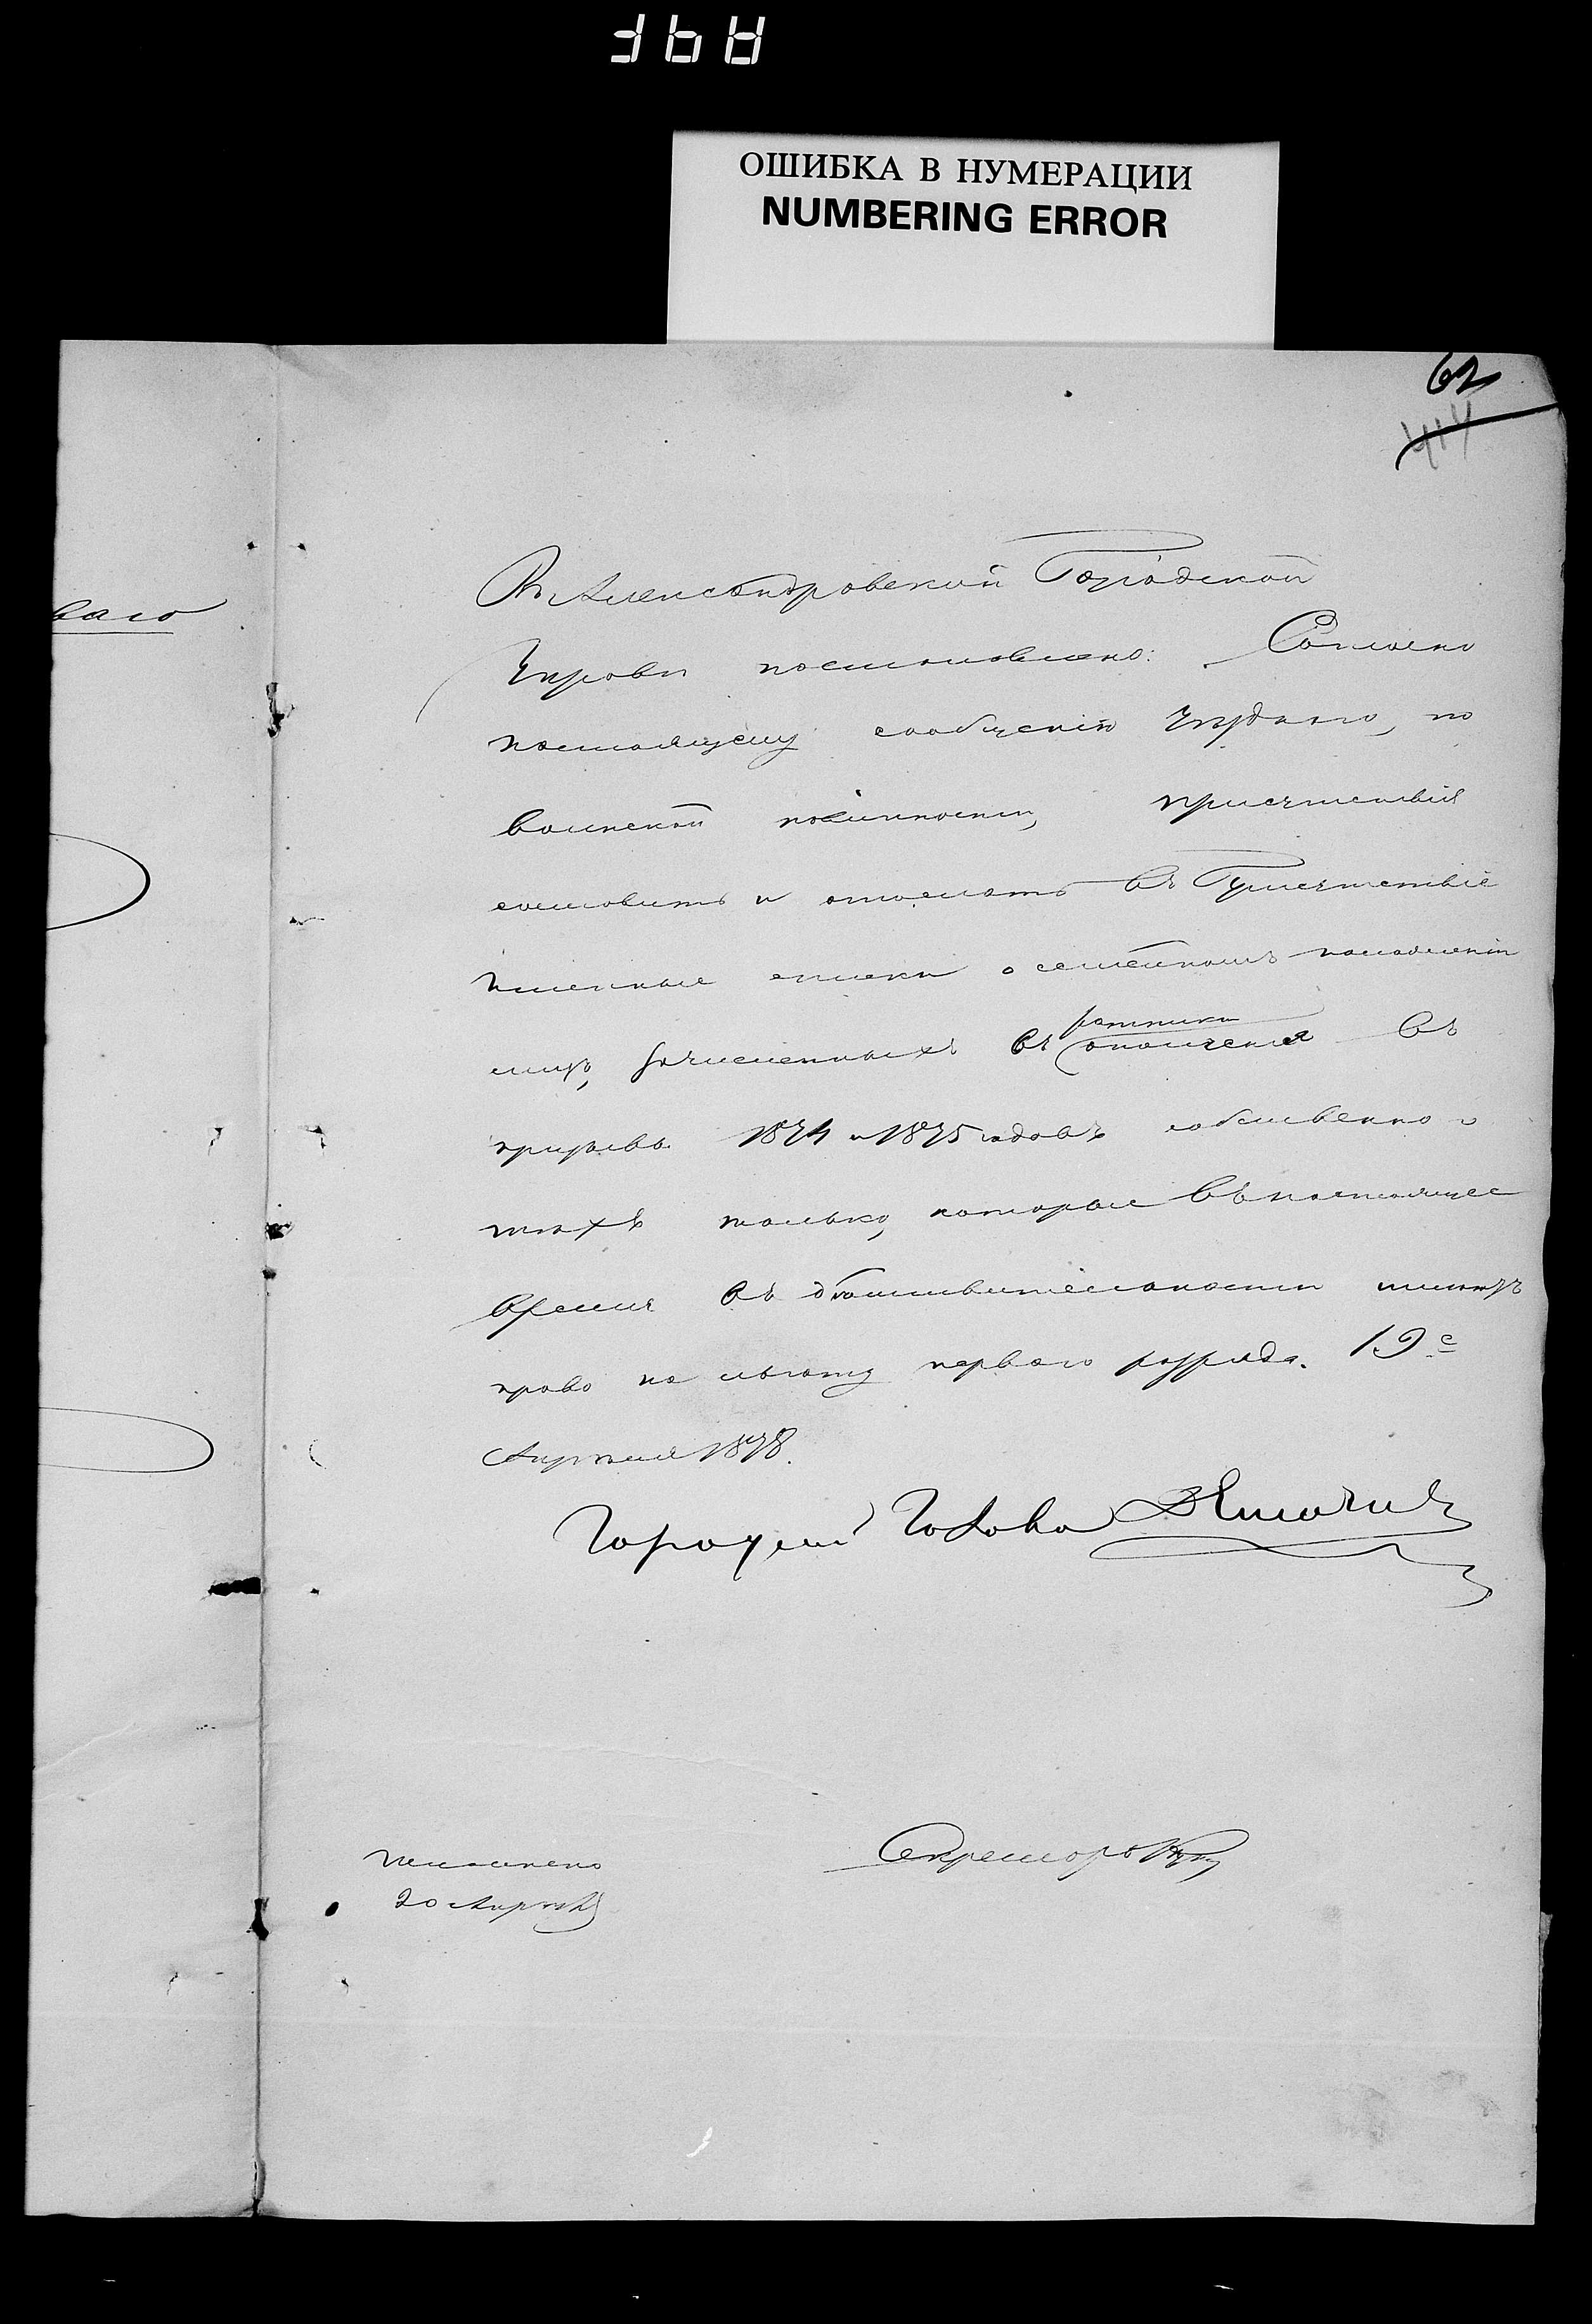 ОШИБКА В НУМЕРАЦИИ
NUMBERING ERROR
62
414
ваго
Въ Александровской Городской
Управѣ постановлено: Согласно
настоящему сообщенію Уѣзднаго, по
воинской повинности, присутствія
составить и отослать въ Присутствіе
именные списки о семейномъ положеніи
лицъ, зачисленныхъ въ ратники
ополченія въ
призывы 1874 и 1875 годовъ собственно о
тѣхъ только, которые въ настоящее
время въ дѣйствительности имѣютъ
право на льготу перваго разряда. 19е
Апрѣля 1878.
Городской Голова
Секретарь
исполнено
20 Апрѣля